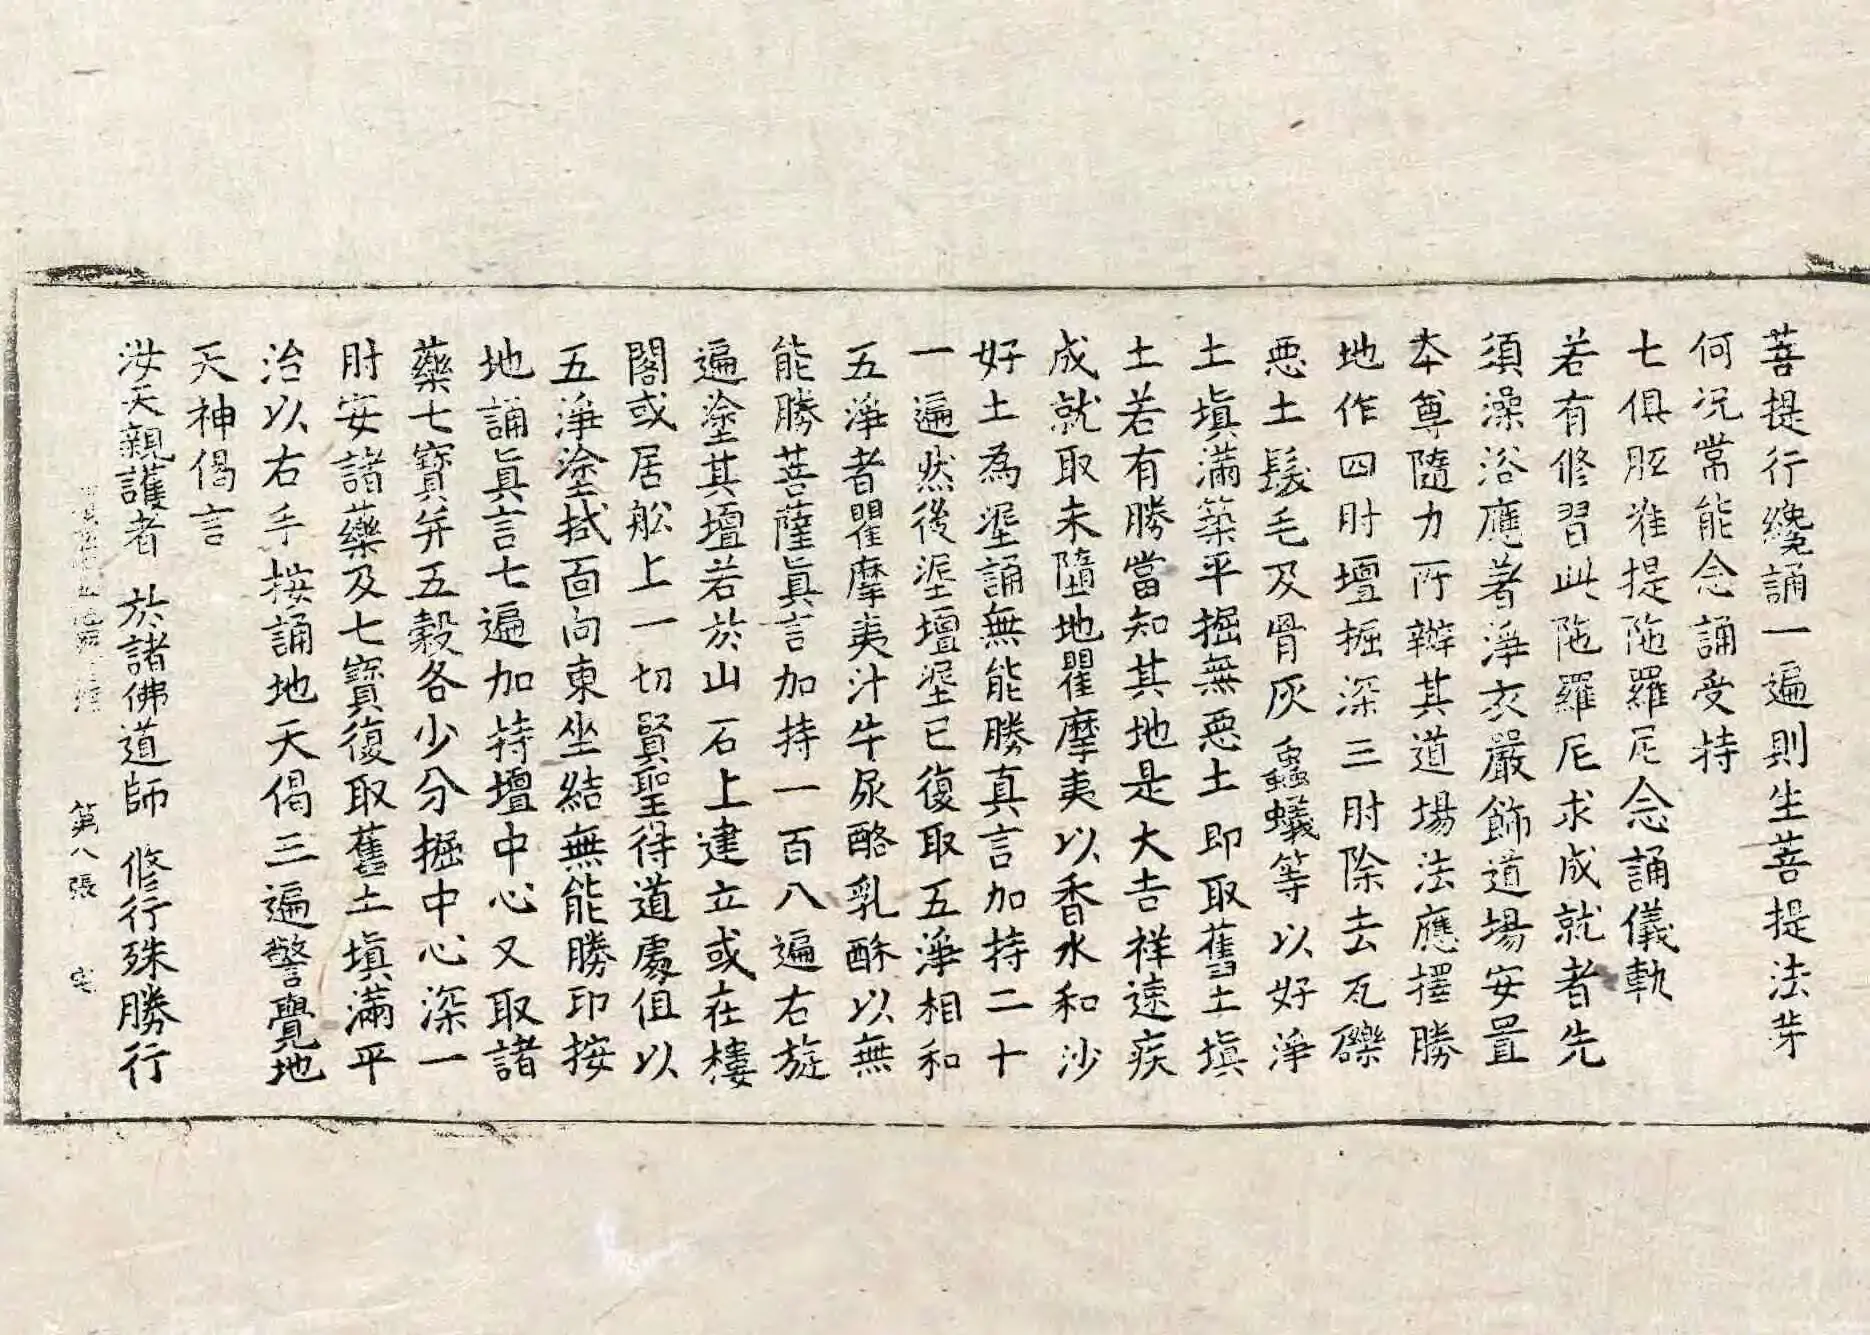 菩提行纔誦一遍則生菩提法芽
何況常能念誦受持
七俱胝准提陁羅尼念誦儀軌
若有修習此陁羅尼求成就者先
須澡浴應著淨衣嚴飾道場安置
本尊隨力所辦其道場法應擇勝
地作四肘壇掘深三肘除去瓦礫
惡土髮毛及骨灰蟲蟻等以好淨
土塡滿築平掘無惡土即取舊土塡
土若有勝當知其地是大吉祥速疾
成就取未墮地瞿摩夷以香水和沙
好土為埿誦無能勝真言加持二十
一遍然後埿壇埿已復取五淨相和
五淨者瞿摩夷汁牛尿酪乳酥以無
能勝菩薩眞言加持一百八遍右旋
遍塗其壇若於山石上建立或在樓
閣或居舩上一切賢聖得道處但以
五淨塗拭面向東坐結無能勝印按
地誦眞言七遍加持壇中心又取諸
藥七寶并五穀各少分掘中心深一
肘安諸藥及七寶復取舊土塡滿平
治以右手按誦地天偈三遍警覺地
天神偈言
汝天親護者 於諸佛道師 修行殊勝行
第八張